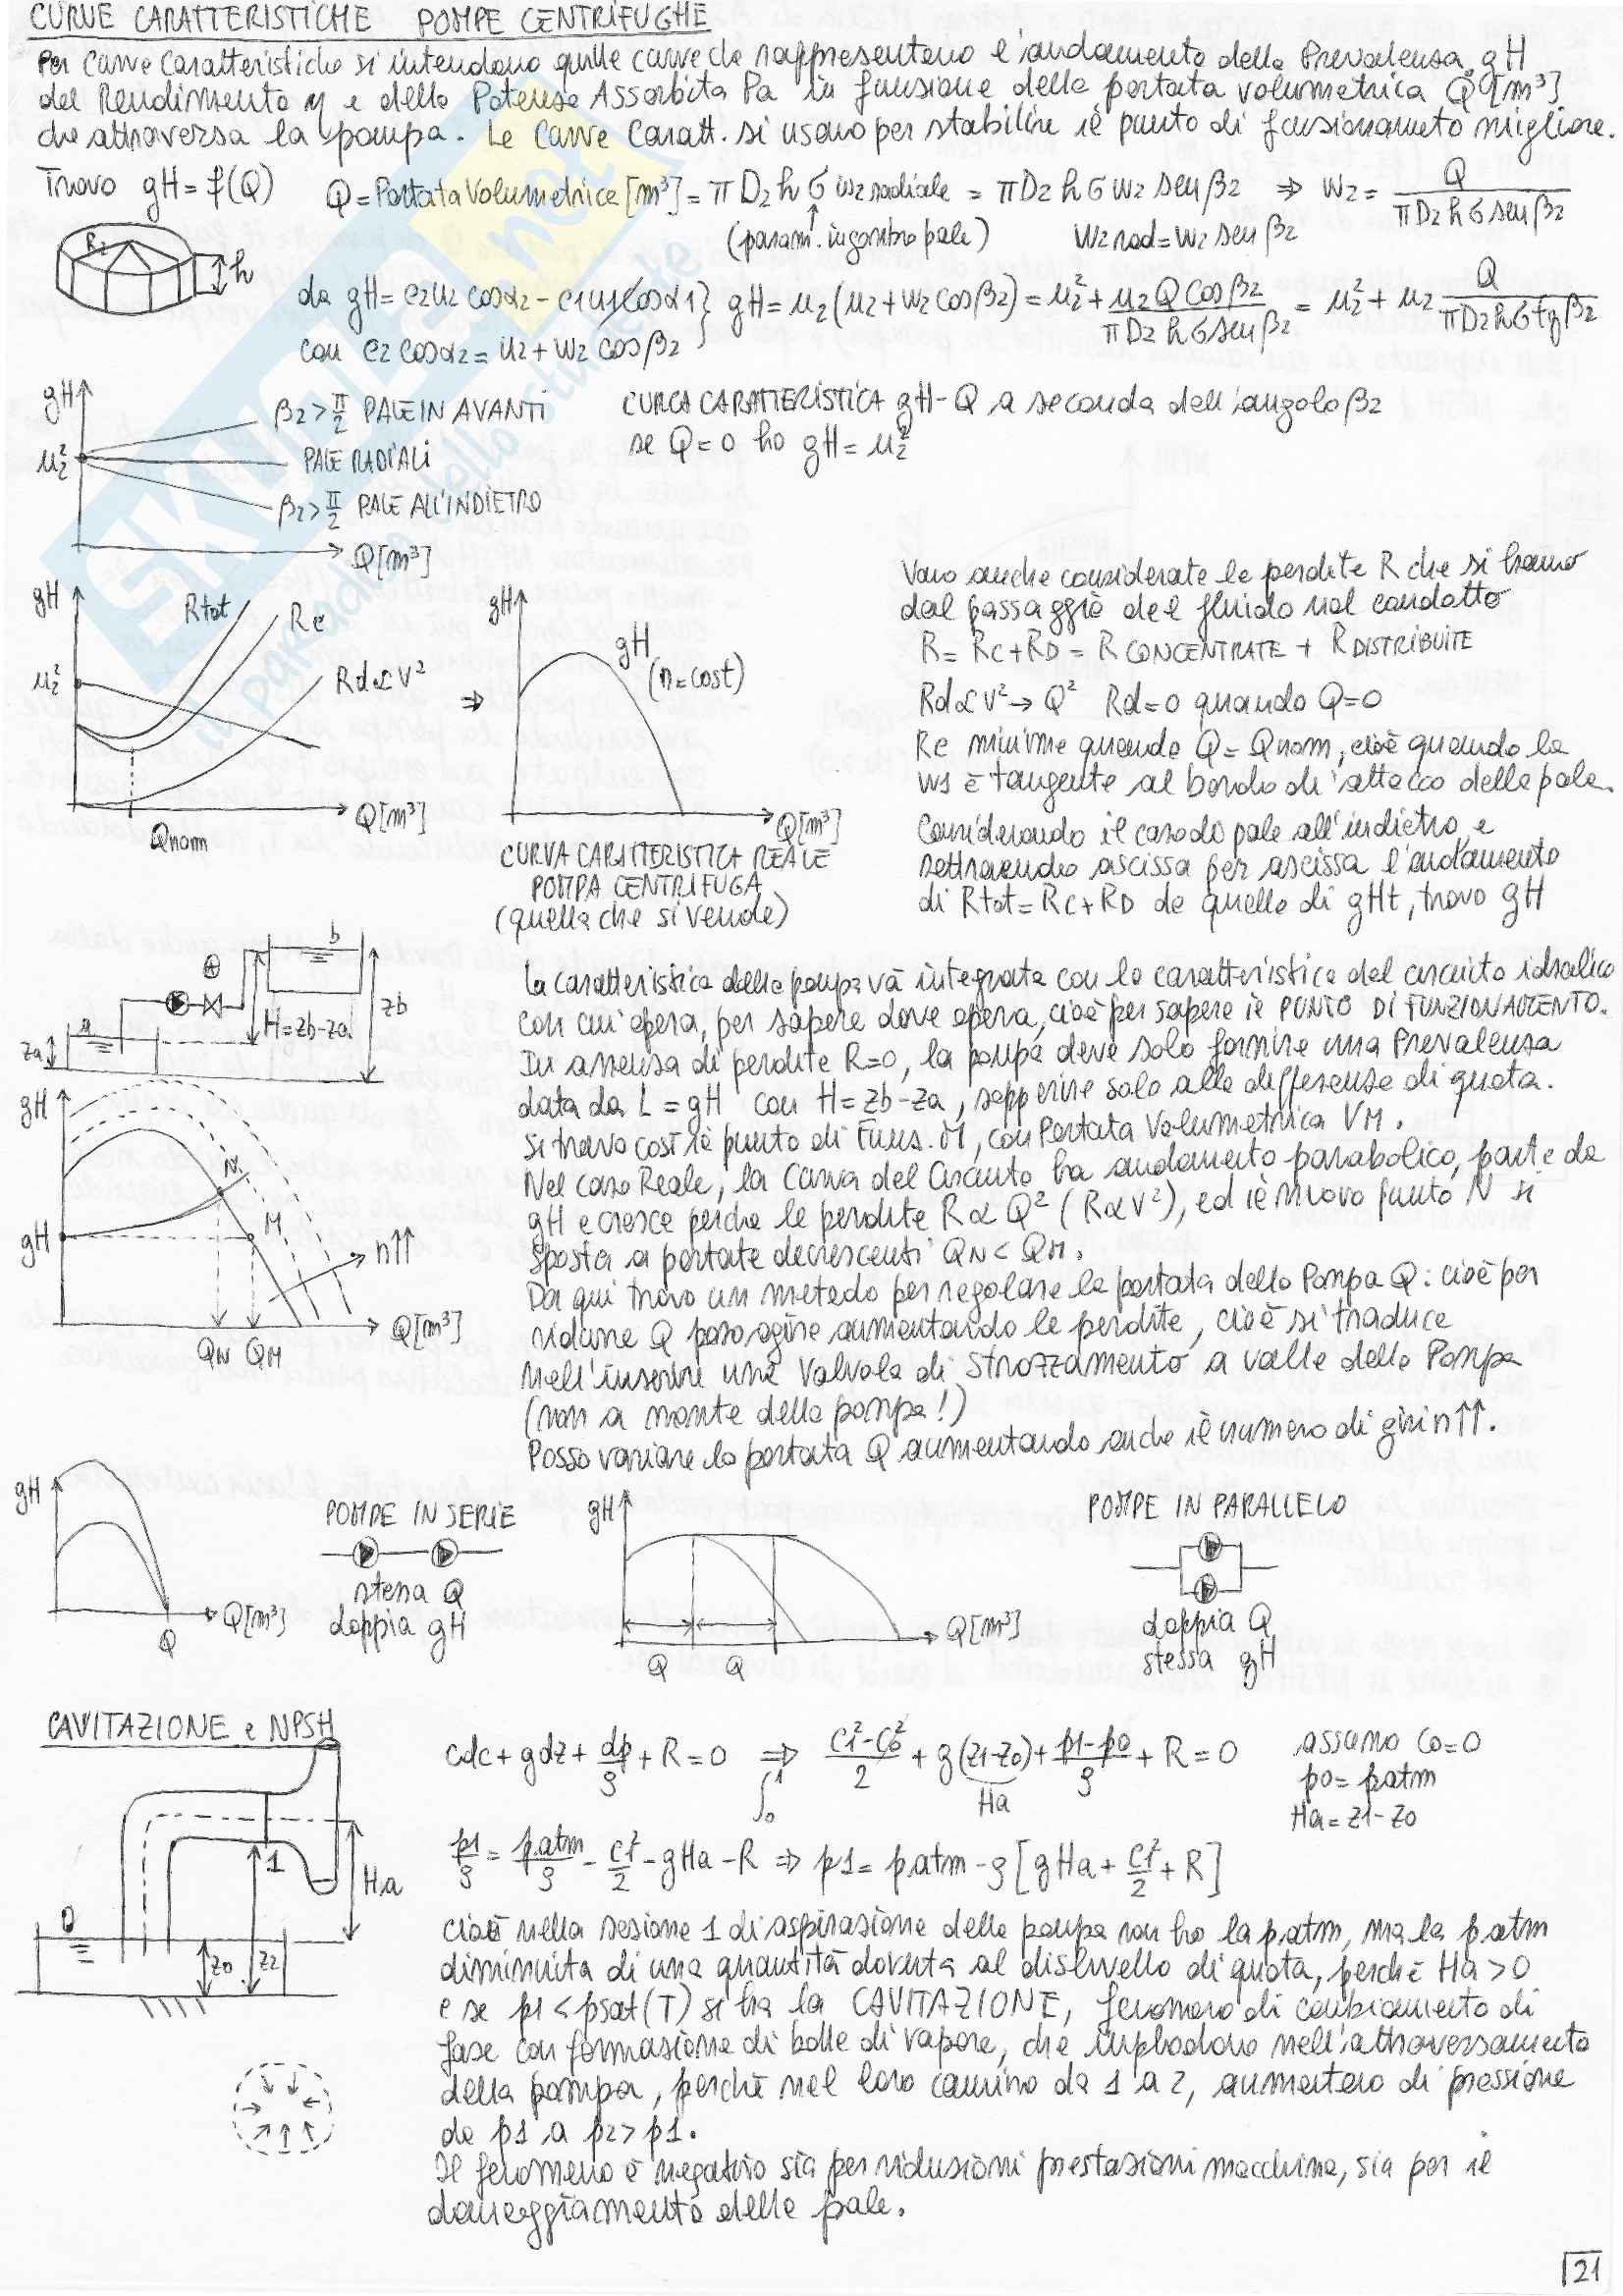 CURVE CARATTERISTICHE POMPE CENTRIFUGHE
Per Curve Caratteristiche si intendono quelle curve che rappresentano l'andamento della Prevalenza gH
del Rendimento η e della Potenza Assorbita Pa in funzione della portata volumetrica Q [m³]
che attraversa la pompa. Le Curve Caratt. si usano per stabilire il punto di funzionamento migliore.
Trovo gH = f(Q) Q = Portata Volumetrica [m³] = π D2 h σ w2 radiale = π D2 h σ w2 sen β2 ⇒ w2 = Q / π D2 h σ sen β2
(param. ingombro pale) w2 rad = w2 sen β2
R2 h
da gH = c2u2 cosα2 - c1u1 cosα1 } gH = u2 (u2 + w2 cosβ2) = u2² + u2 Q cosβ2 / π D2 h σ sen β2 = u2² + u2 Q / π D2 h σ tg β2
con c2 cosα2 = u2 + w2 cosβ2
gH
β2 > π/2 PALE IN AVANTI
CURCA CARATTERISTICA gH-Q a seconda dell'angolo β2
u2² PALE RADIALI
se Q = 0 ho gH = u2²
β2 > π/2 PALE ALL'INDIETRO
Q [m³]
Vano anche considerate le perdite R che si hanno
dal passaggio del fluido nel condotto
R = Rc + RD = R CONCENTRATE + R DISTRIBUITE
Rd ∝ v² → Q² Rd = 0 quando Q = 0
Rc minime quando Q = Qnom, cioè quando la
w1 è tangente al bordo di attacco delle pale.
Considerando il caso di pale all'indietro, e
sottraendo ascissa per ascissa l'andamento
di Rtot = Rc + RD da quello di gHt, trovo gH
gH Rtot Rc
u2² Rd ∝ v²
Qnom Q [m³]
⇒
gH gH
(n = cost)
Q [m³]
CURVA CARATTERISTICA REALE
POMPA CENTRIFUGA
(quella che si vende)
b
a
H = zb - za
zb
za
La caratteristica della pompa va integrata con la caratteristica del circuito idraulico
con cui opera, per sapere dove opera, cioè per sapere il PUNTO DI FUNZIONAMENTO.
In assenza di perdite R = 0, la pompa deve solo fornire una Prevalenza
data da L = gH con H = zb - za, sopperire solo alla differenza di quota.
Si trova così il punto di Funz. M, con Portata Volumetrica VM.
Nel caso Reale, la Curva del Circuito ha andamento parabolico, parte da
gH e cresce perchè le perdite R ∝ Q² (R ∝ v²), ed il nuovo punto N si
sposta a portate decrescenti QN < QM.
Da qui trovo un metodo per regolare la portata della Pompa Q: cioè per
ridurre Q posso agire aumentando le perdite, cioè si traduce
nell'inserire una Valvola di Strozzamento a valle della Pompa
(non a monte della pompa!)
Posso variare la portata Q aumentando anche il numero di giri n↑↑.
gH
N
M
gH
n↑↑
Q [m³]
QN QM
gH
Q [m³]
Q
POMPE IN SERIE
stessa Q
doppia gH
gH
Q [m³]
Q Q
POMPE IN PARALLELO
doppia Q
stessa gH
CAVITAZIONE e NPSH
cdc + gdz + dp/ρ + R = 0 ⇒ ∫₀¹ c1² - c0² / 2 + g (z1 - z0) + p1 - p0 / ρ + R = 0 assumo c0 = 0
Ha p0 = patm
Ha = z1 - z0
p1/ρ = patm/ρ - c1²/2 - gHa - R ⇒ p1 = patm - ρ [gHa + c1²/2 + R]
1
Ha
0
z0 z2
cioè nella sezione 1 di aspirazione della pompa non ho la patm, ma la patm
diminuita di una quantità dovuta al dislivello di quota, perchè Ha > 0
e se p1 < psat(T) si ha la CAVITAZIONE, fenomeno di cambiamento di
fase con formazione di bolle di vapore, che implodono nell'attraversamento
della pompa, perchè nel loro cammino da 1 a 2, aumentano di pressione
da p1 a p2 > p1.
Il fenomeno è negativo sia per riduzioni prestazioni macchina, sia per il
danneggiamento delle pale.
21